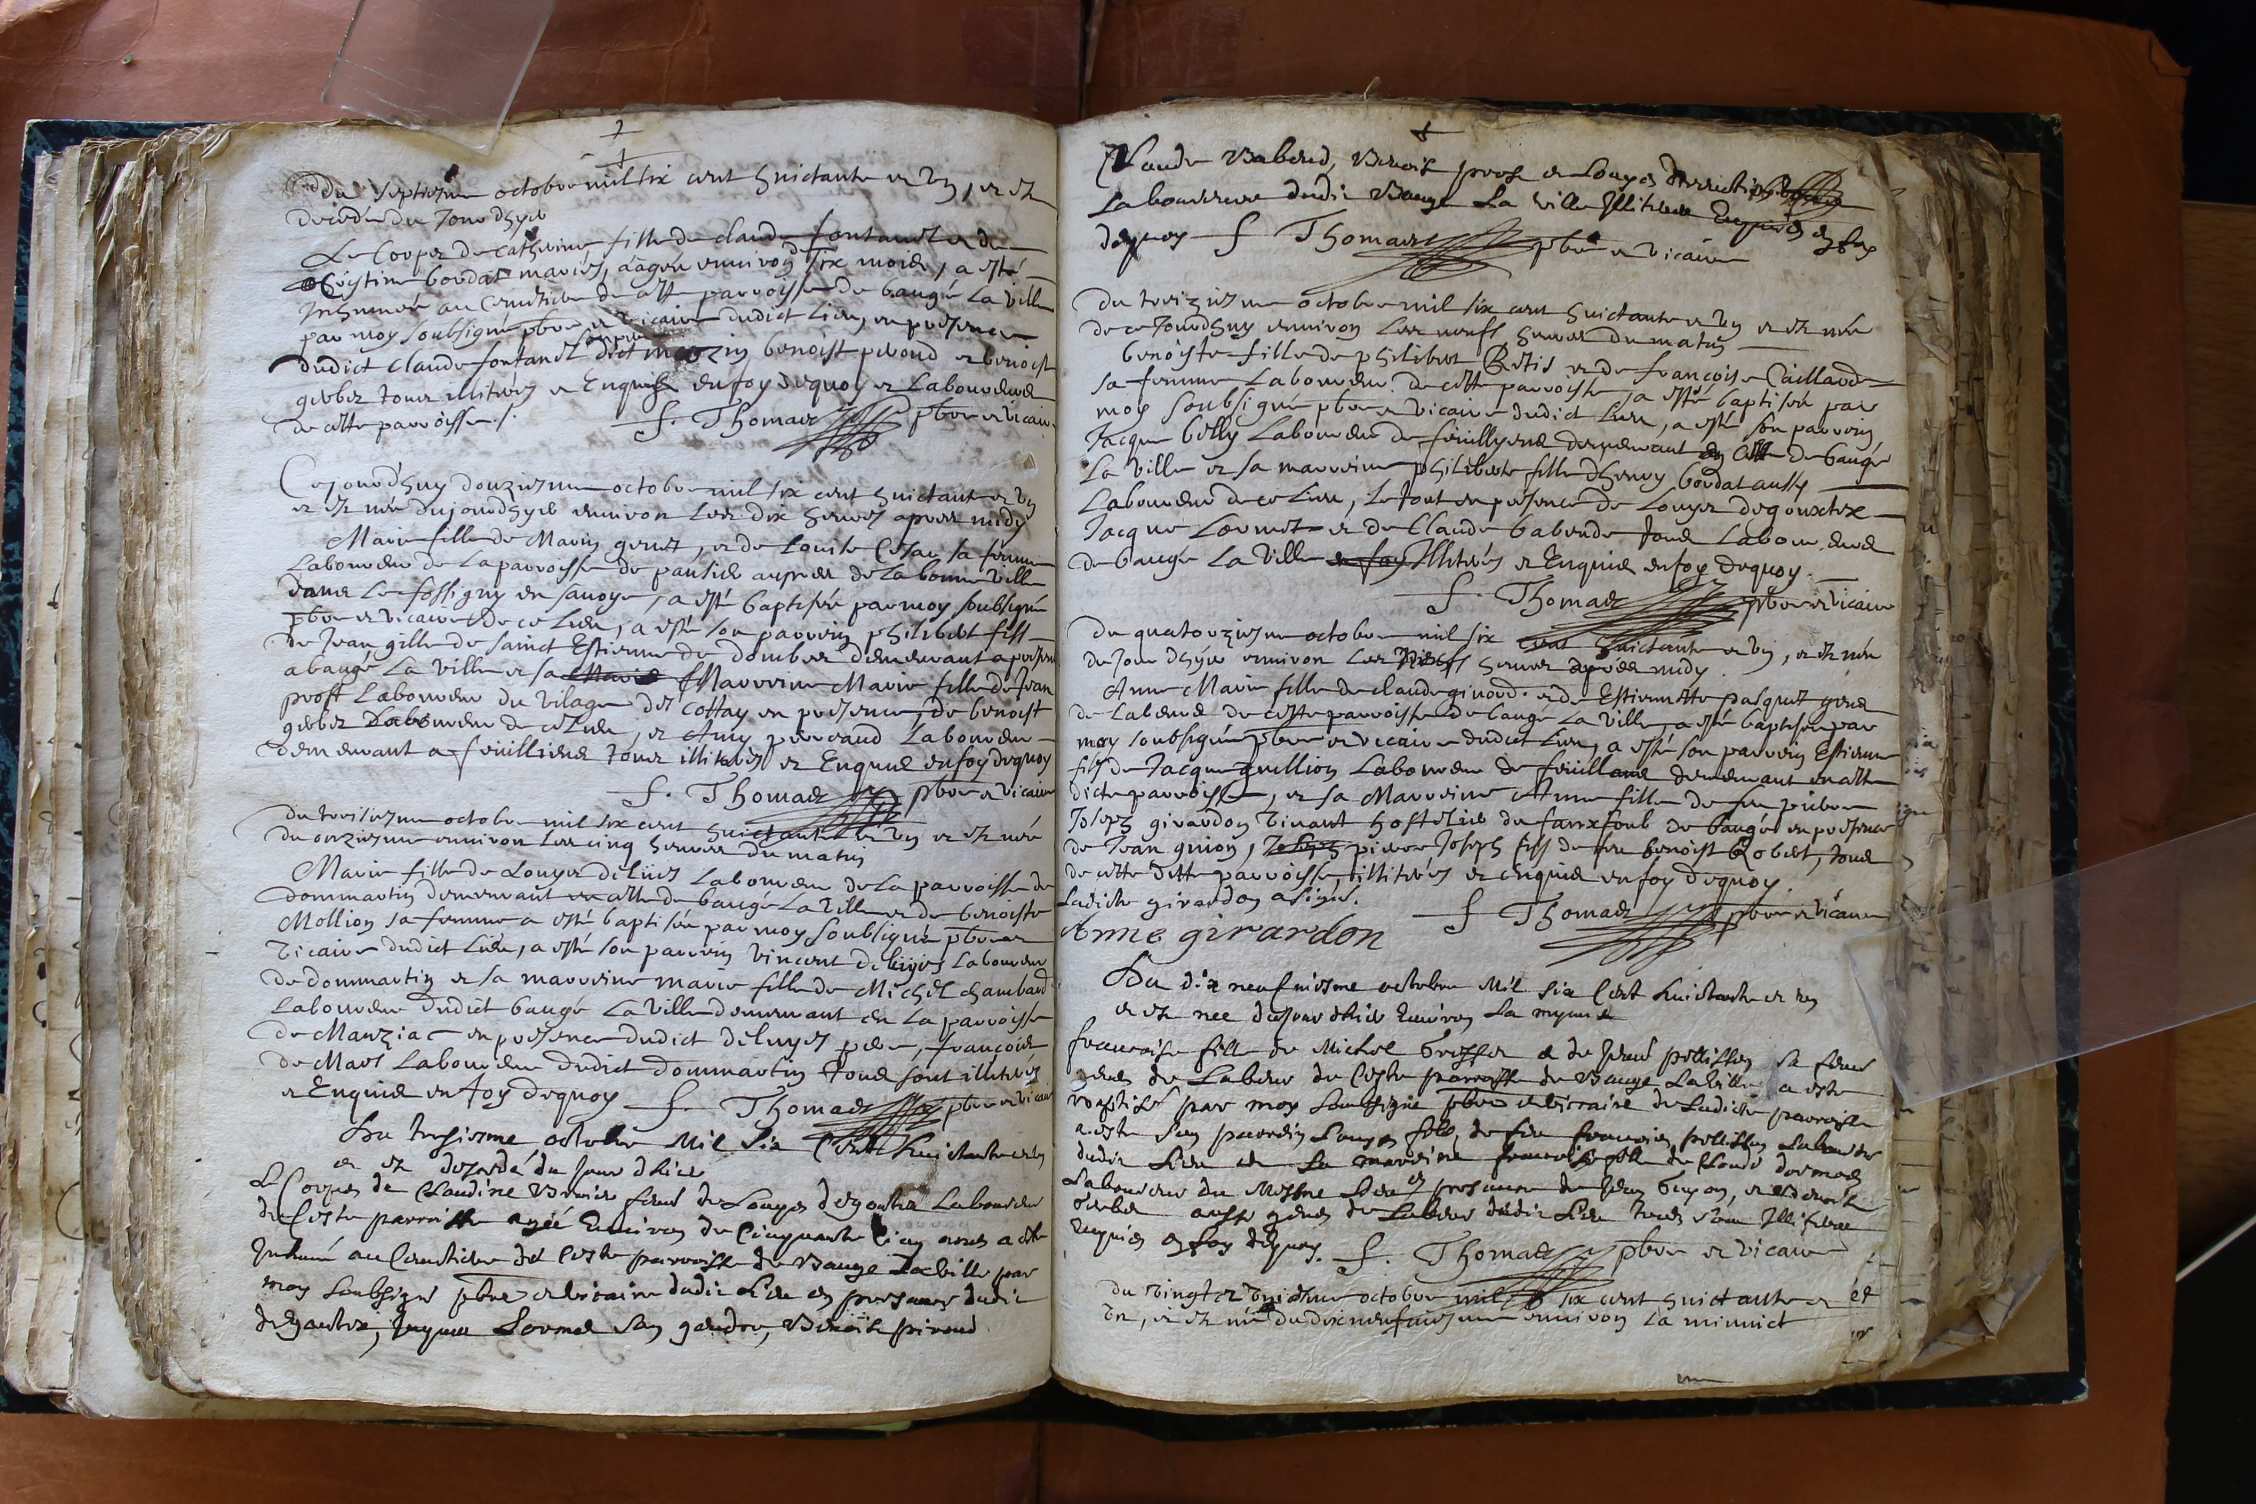 du septiesme octobre mil six cent huictante et un, et est
decedée du Jourdhyer
Le Corps de Catherine fille de claude fontanel et de
Cristine bordat mariés, aagée environ de six mois, a esté
Inhumée au Cemetiere de cette parroisse de baugé La ville
par moy soubsigné pbre et vicaire dudict Lieu, en presence
dudict Claude fontanel dict benoist peroud et benoist
gerbez tous illiterés et Enquis enfoy dequoy et Laboureurs
de cette parroisse /.
f. Thomas pbre et vicaire
Cejourdhuy douziesme octobre mil six cent huictante et un
et est née dujourdhyer environ les dix heures apres midy
Marie fille de Marin genet, et de Louise Cesar sa femme
Laboureur de La parroisse de aupres de La bonne ville
dans Le fossigny en savoye, a esté baptisée par moy soubsigné
pbre et vicaire de ce Lieu, a esté son parrein philibert fils
de Jean gille de sainct Estienne de Dombes demeurant a present
a baugé La ville et sa Marie Marreine Marie fille de Jean
prost Laboureur du vilage des Cottay en presence, de benoist
gerbez Laboureur de ce Lieu, et Amy perraud Laboureur
demeurant a feuilliens tous illiterés et Enquis enfoy dequoy
f. Thomas pbre et vicaire
du treisiesme octobre mil six cent huictante et un et est née
du onziesme environ les cinq heures du matin
Marie fille de Louys deliies Laboureur de La parroisse de
dommartin demeurant en cette de baugé La ville et de benoiste
Mollion sa femme a esté baptisée par moy soubsigné pbre et
vicaire dudict Lieu, a esté son parrein vincent Laboureur
de dommartin et sa marreine marie fille de Michel chambard
Laboureur dudict baugé La ville demeurant en La parroisse
de Manziac en presence dudict pere, francois
de Mars Laboureur dudict dommartin tous sont illiterés
et Enquis en foy dequoy f. Thomas pbre et vicaire
Du tresiesme octobre Mil Six Cent huictante et un
et est decedé du Jour dhier
Le Corps de Claudine femme de Louys degoutex Laboureur
de Ceste parroisse agée Environ de Cinquante Cinq ans a esté
Inhumé au Cemetiere de Ceste parroisse de Bauge La ville par
moy soubsigné pbre et vicaire dudit Lieu en presence dudit
degoutex, Jaque Lormet son gendre, Benoist piroud
Claude Baberd, Benoist prost et Louys
Laboureurs dudit Bauge La ville Illiteres Enquis en foy
dequoy f Thomas pbre et vicaire
du treiziesme octobre mil six cent huictante et un et est née
de ce Jourdhuy environ Les neufs heures du matin
benoiste fille de philibert Retis et de francoise Caillaud
sa femme Laboureur de cette parroisse, a esté baptisée par
moy soubsigné pbre et vicaire dudict Lieu, a esté son parrein
Jacque billy Laboureur de feuillyens demeurant en cette de baugé
La ville et sa marreine philiberte fille dhenry bordat aussy
Laboureur de ce Lieu, Le tout en presence de Louys degouxtex
Jacque Lormet et de Claude baberde tous Laboureurs
de baugé La ville en foy Illiterés et Enquis enfoy dequoy.
f. Thomas pbre et vicaire
Du quatorziesme octobre mil six cent huictante et un, et est née
du Jour dhyer environ Les heures apres midy.
Anne Marie fille de claude girord et de Estiennette pasquet gens
de Labeur de cette parroisse de baugé La ville, a esté baptisée par
moy soubsigné pbre et vicaire dudict Lieu, a esté son parrein Estienne
fils de Jacque guillion Laboureur de feuillans demeurant en cette
dicte parroisse, et sa Marreine Anne fille de feu pierre
Joseph girardon vivant hostelier du fauxfoub de baugé en presence
de Jean guion, Joseph pierre Joseph fils de feu benoist Robert, tous
de cette ditte parroisse, illiterés et enquis enfoy dequoy.
Ladicte girardon a signé. f Thomas pbre et vicaire
Anne girardon
Du dix neufviesme octobre Mil Six Cent huictante et un
et est née dujour dhier Environ La mynuit
francoise fille de Michel et de pellisson sa femme
gens de Labeur de Ceste parroisse de Bauge La ville a este
baptisé par moy soubsigné pbre et vicaire de Ladicte parroisse
a este son parrein Louys fils de feu francois pellisson Laboureur
dudit Lieu et La marreine francoise fille de Claude dormas
Laboureur du Mesme Lieu en presence de Jean guyon, et
gerbet aussy gens de Labeur dudit Lieu tous Illiteres
Enquis en foy dequoy. f. Thomas pbre et vicaire
du vingt et uniesme octobre mil six cent huictante et
un, et est né du dixneufviesme environ La minuict